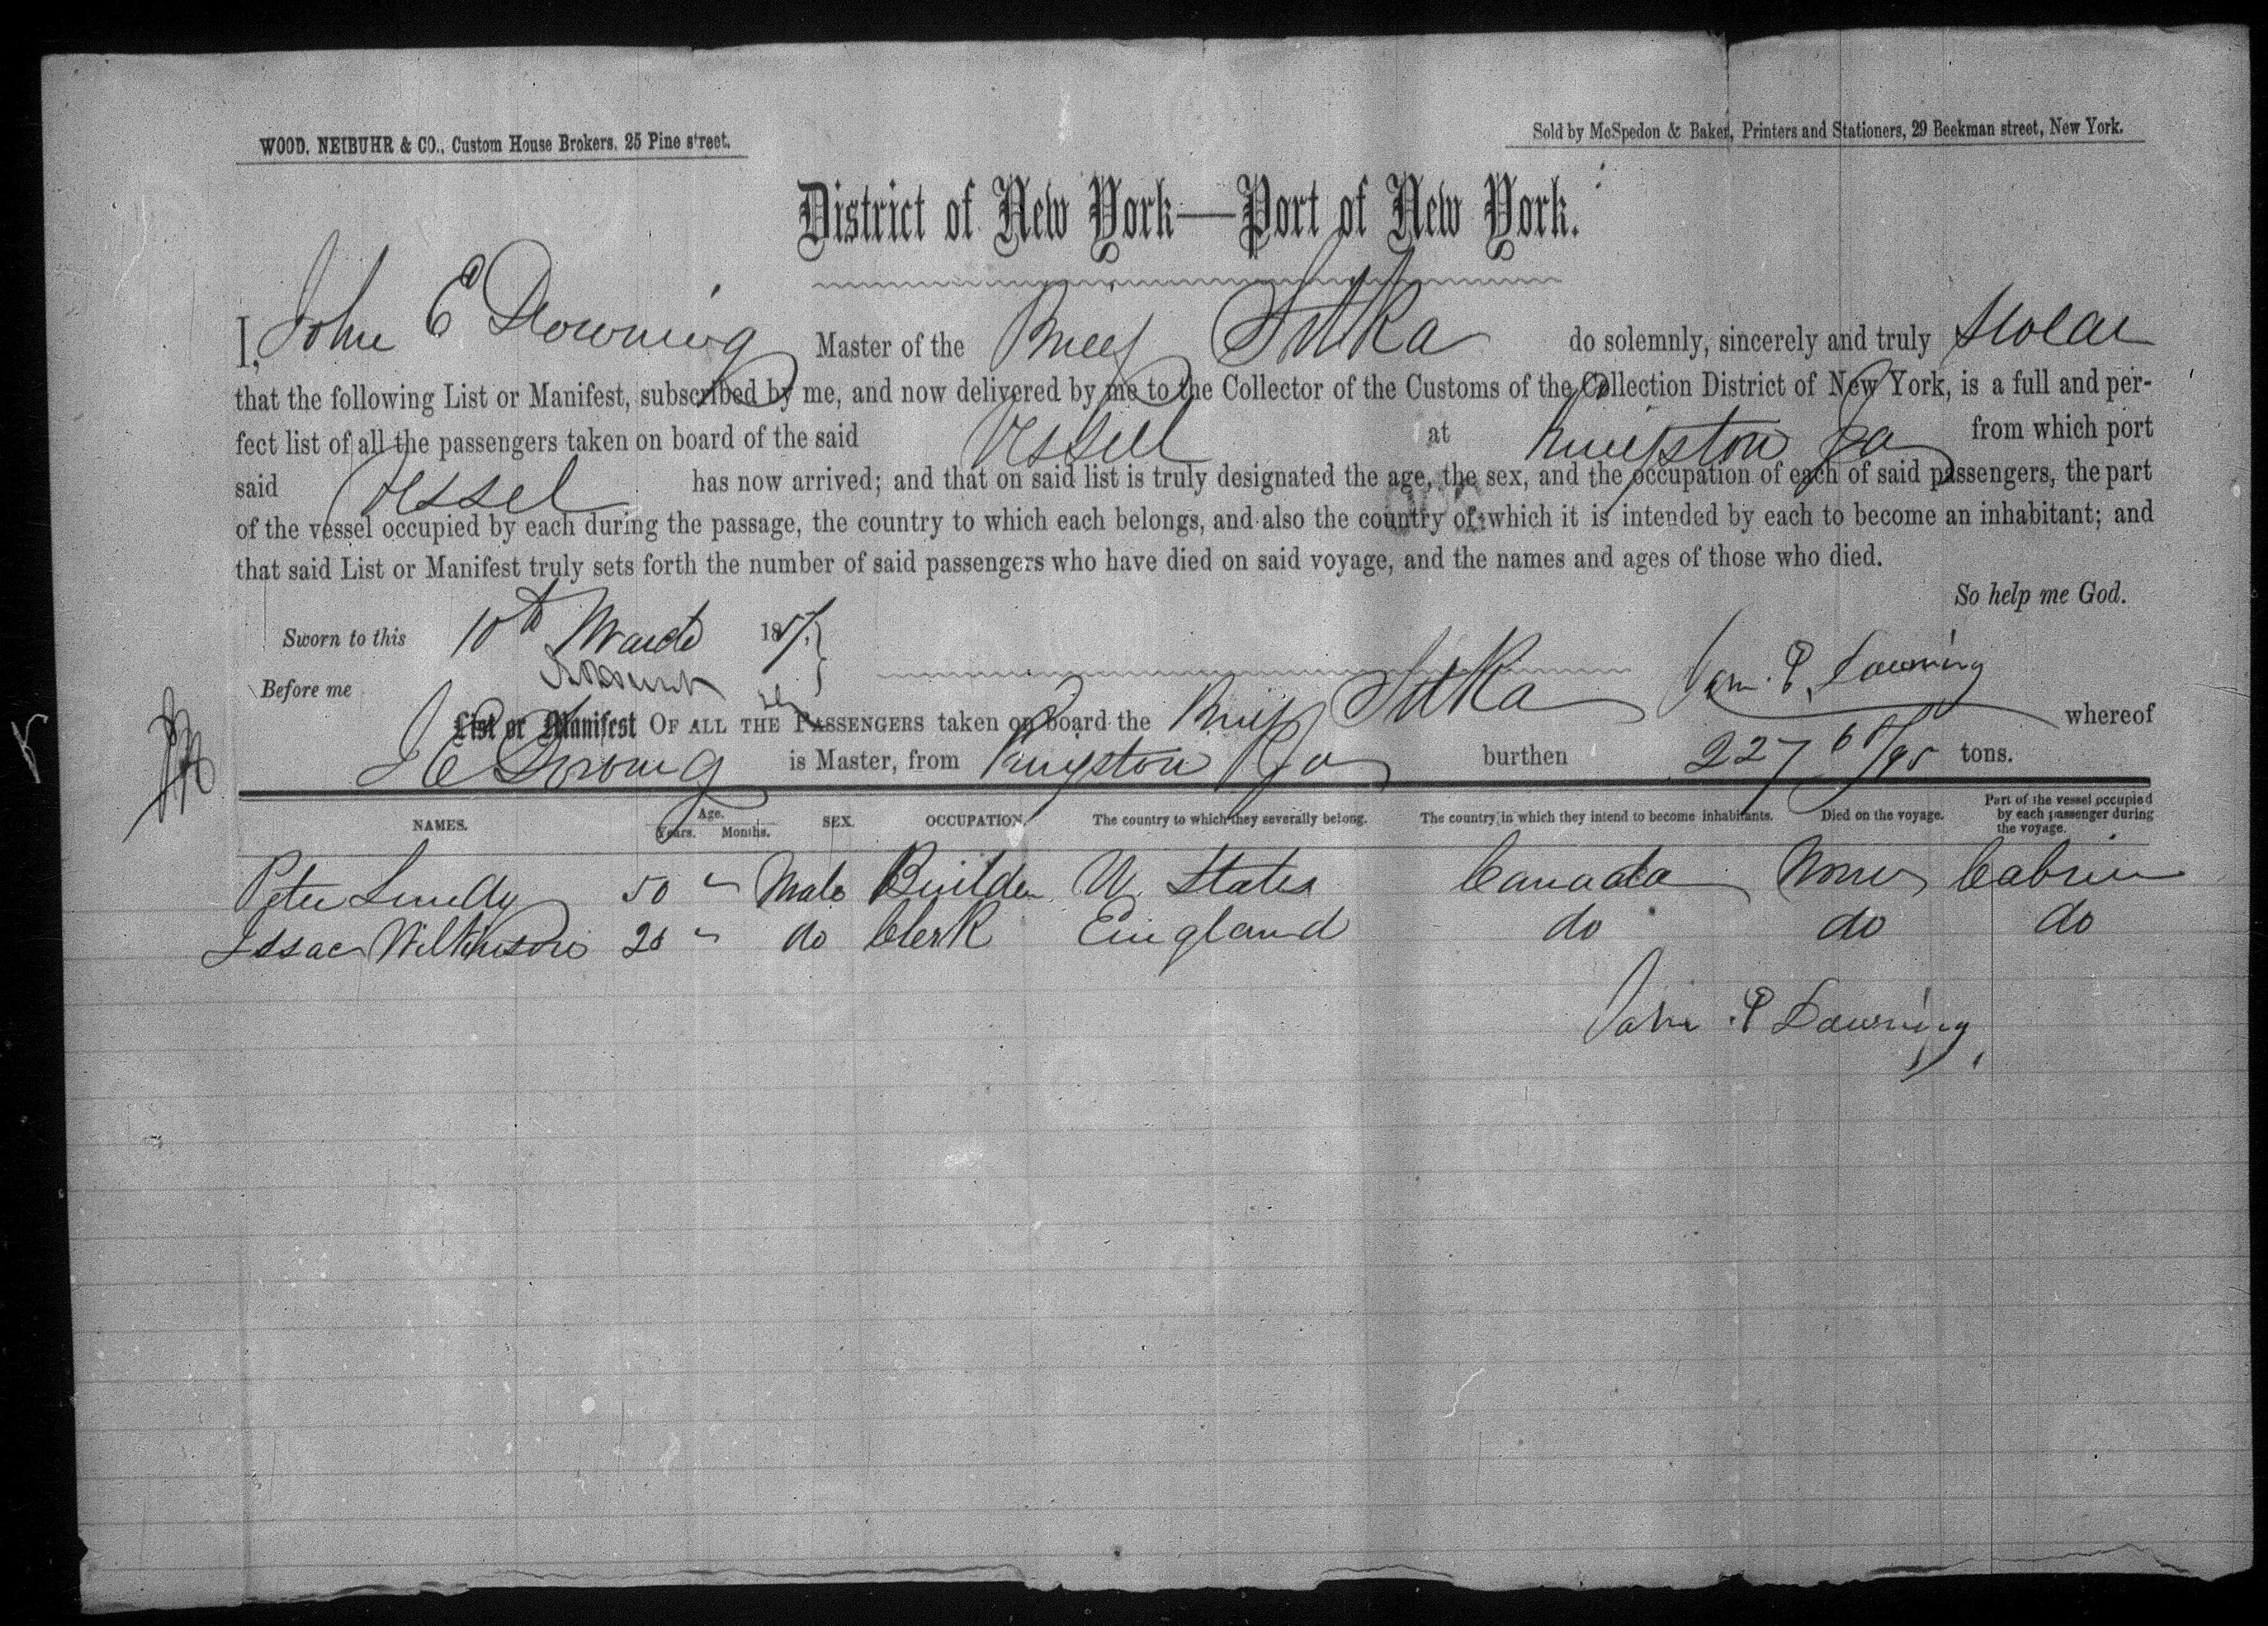 WOOD, NEIBUHR & CO., Custom House Brokers, 25 Pine street.
Sold by McSpedon & Baker, Printers and Stationers, 29 Beekman street, New York.
District of New York—Port of New York.
I, John E Downing Master of the Brig Sitka do solemnly, sincerely and truly swear
that the following List or Manifest, subscribed by me, and now delivered by me to the Collector of the Customs of the Collection District of New York, is a full and per-
fect list of all the passengers taken on board of the said Vessel at Kingston Ja from which port
said Vessel has now arrived; and that on said list is truly designated the age, the sex, and the occupation of each of said passengers, the part
of the vessel occupied by each during the passage, the country to which each belongs, and also the country of which it is intended by each to become an inhabitant; and
that said List or Manifest truly sets forth the number of said passengers who have died on said voyage, and the names and ages of those who died.
So help me God.
Sworn to this 10th March 18
Before me
John E Downing
List or Manifest OF ALL THE PASSENGERS taken on board the Brig Sitka whereof
J E Downing is Master, from Kingston Ja burthen 227 /95 tons.
NAMES. Age. Years. Months. SEX. OCCUPATION. The country to which they severally belong. The country in which they intend to become inhabitants. Died on the voyage. Part of the vessel occupied by each passenger during the voyage.
Peter Lundy 50 " Male Builder U. States Canada None Cabin
Issac Wilkinson 20 " do Clerk England do do do
John E Downing